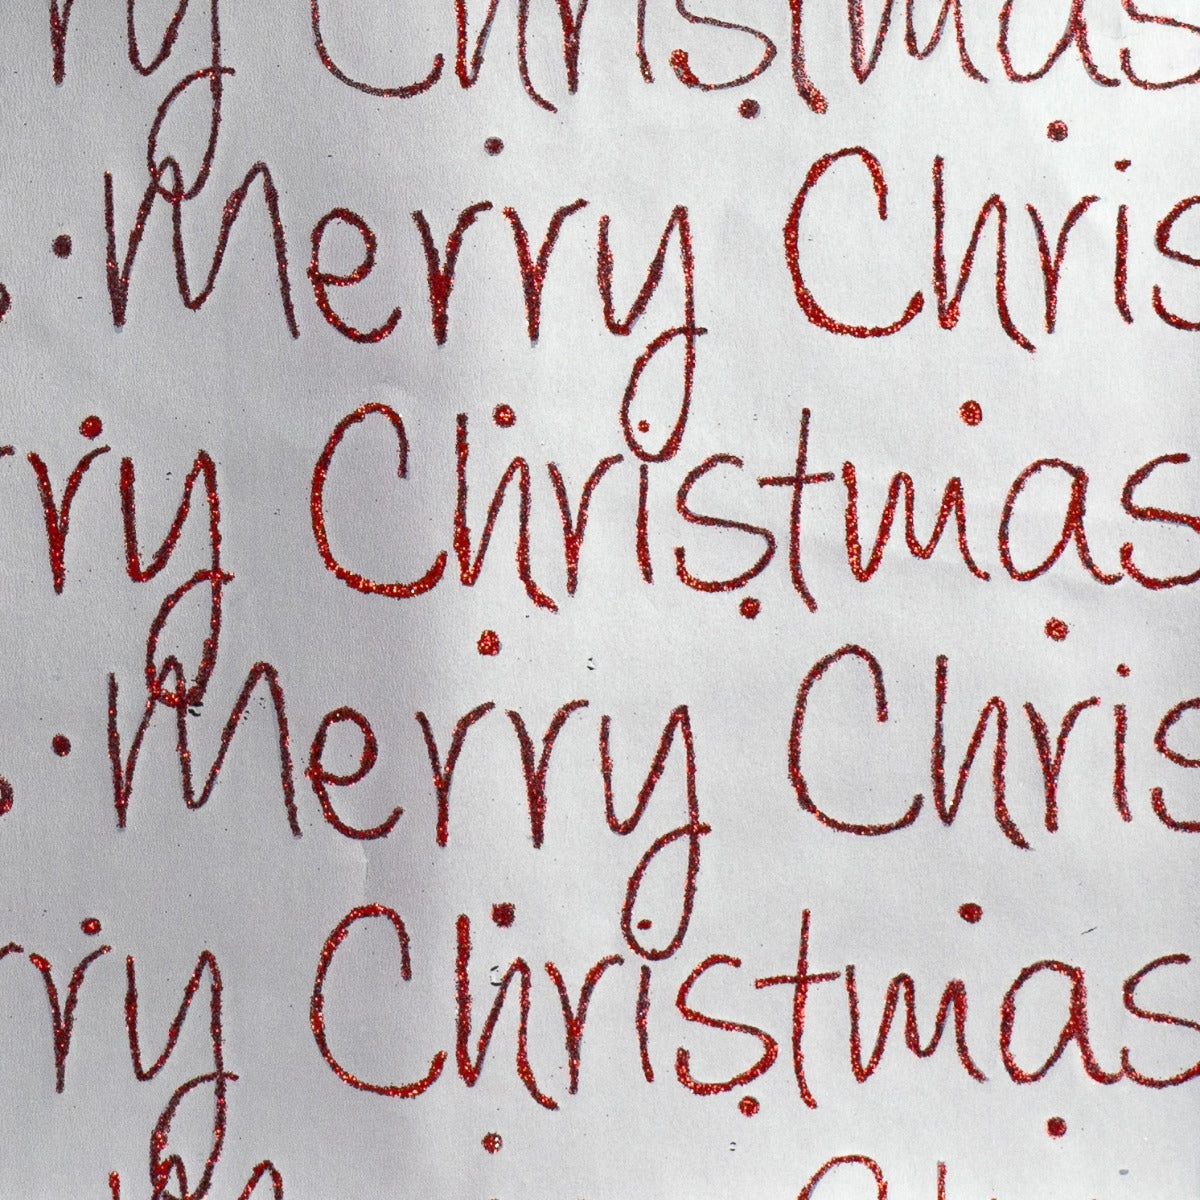 ry Christmas
Merry Chris
rry Christmas
Merry Chris
rry Christmas